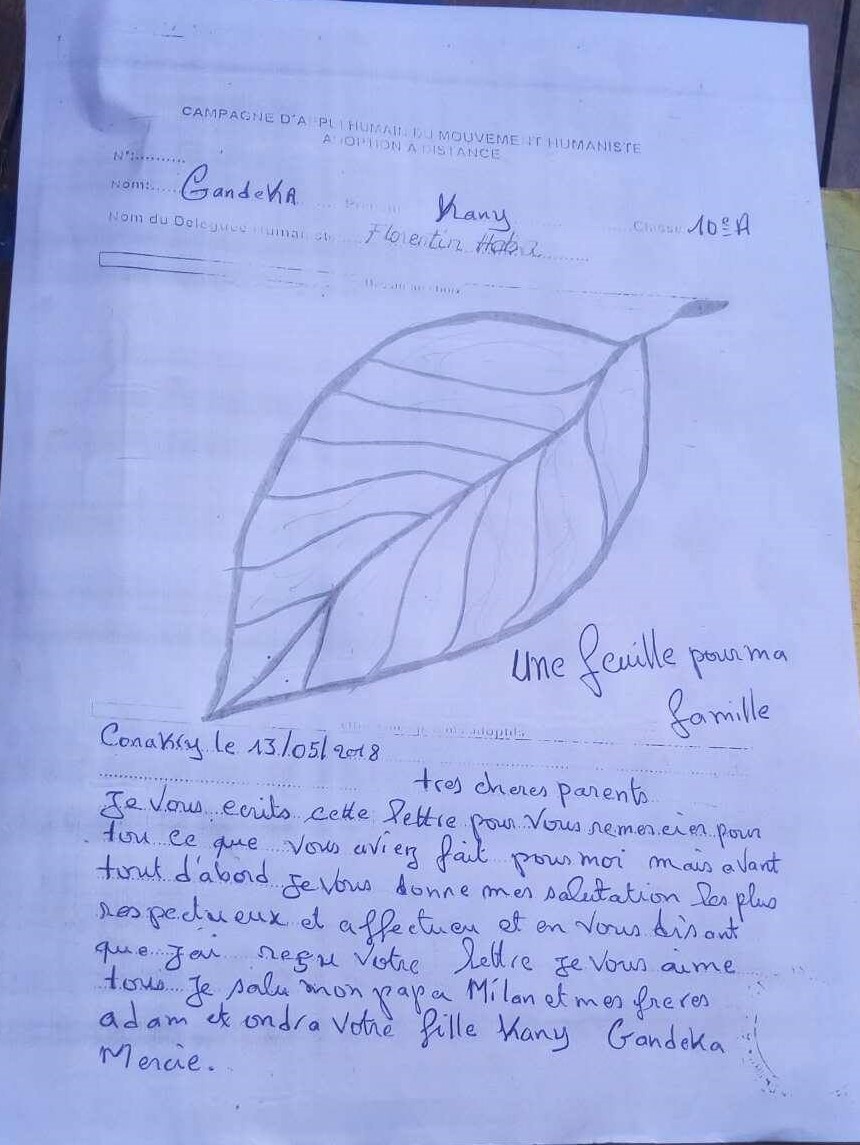 CAMPAGNE D'APPEL HUMAIN DU MOUVEMENT HUMANISTE
ADOPTION A DISTANCE
N°:..........
Nom:..... GandeKA Kany Classe 10e A
Nom du Delegue Humaniste Florentin Haba
Une feuille pour ma
famille
Conakry le 13/05/2018
tres cheres parents
Je Vous ecrits cette lettre pour Vous remercier pour
tou ce que vous aviez fait pour moi mais avant
tout d'abord Je Vous donne mes salutation les plus
respectueux et affectueu et en Vous disant
que J'ai reçu Votre lettre Je Vous aime
tous Je salu mon papa Milan et mes freres
adam et ondra Votre fille Kany Gandeka
Mercie.